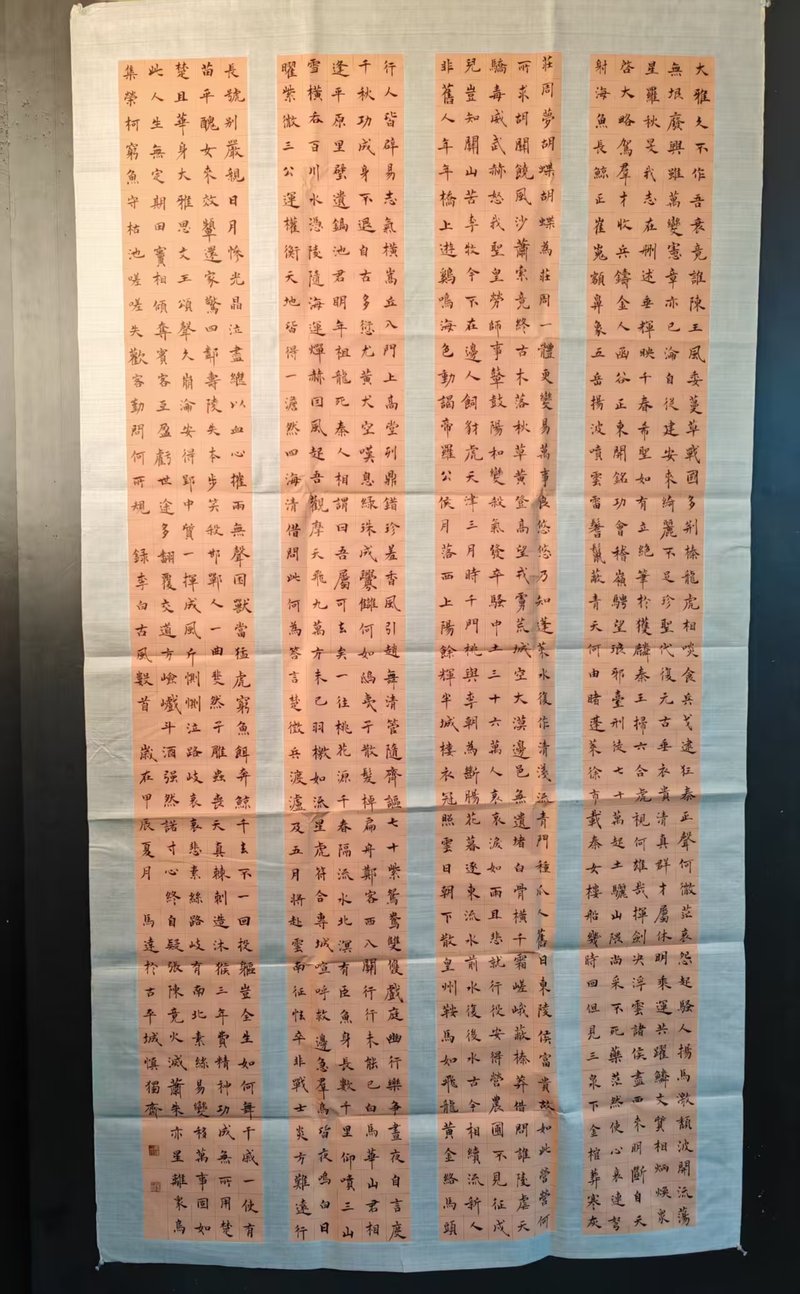 大雅久不作吾衰竟誰陳王風委蔓草戰國多荊榛龍虎相啖食兵戈逮狂秦正聲何微茫哀怨起騷人揚馬激頹波開流蕩
無垠廢興雖萬變憲章亦已淪自從建安來綺麗不足珍聖代復元古垂衣貴清真群才屬休明乘運共躍鱗文質相炳煥衆
星羅秋旻我志在刪述垂輝映千春希聖如有立絕筆於獲麟秦王掃六合虎視何雄哉揮劍決浮雲諸侯盡西來明斷自天
啓大略駕羣才收兵鑄金人函谷正東開銘功會稽嶺騁望琅邪臺刑徒七十萬起土驪山隈尚采不死藥茫然使心哀連弩
射海魚長鯨正崔嵬額鼻象五岳揚波噴雲雷鬐鬣蔽青天何由睹蓬萊徐巿載秦女樓船幾時回但見三泉下金棺葬寒灰
莊周夢胡蝶胡蝶為莊周一體更變易萬事良悠悠乃知蓬萊水復作清淺流青門種瓜人舊日東陵侯富貴故如此營營何
所求胡關饒風沙蕭索竟終古木落秋草黃登高望戎虜荒城空大漠邊邑無遺堵白骨橫千霜嵯峨蔽榛莽借問誰陵虐天
驕毒威武赫怒我聖皇勞師事鼙鼓陽和變殺氣發卒騷中土三十六萬人哀哀淚如雨且悲就行役安得營農圃不見征戍
兒豈知關山苦李牧今不在邊人飼豺虎天津三月時千門桃與李朝為斷腸花暮逐東流水前水復後水古今相續流新人
非舊人年年橋上遊鷄鳴海色動謁帝羅公侯月落西上陽餘輝半城樓衣冠照雲日朝下散皇州鞍馬如飛龍黃金絡馬頭
行人皆辟易志氣橫嵩丘入門上高堂列鼎錯珍羞香風引趙舞清管隨齊謳七十紫鴛鴦雙雙戲庭幽行樂爭晝夜自言度
千秋功成身不退自古多愆尤黃犬空嘆息綠珠成釁讎何如鴟夷子散髮棹扁舟鄭客西入關行行未能已白馬華山君相
逢平原里璧遺鎬池君明年祖龍死秦人相謂曰吾屬可去矣一往桃花源千春隔流水北溟有巨魚身長數千里仰噴三山
雪橫吞百川水憑陵隨海運燀赫因風起吾觀摩天飛九萬方未已羽檄如流星虎符合專城喧呼救邊急羣鳥皆夜鳴白日
曜紫微三公運權衡天地皆得一澹然四海清借問此何為答言楚徵兵渡瀘及五月將赴雲南征怯卒非戰士炎方難遠行
長號別嚴親日月慘光晶泣盡繼以血心摧兩無聲困獸當猛虎窮魚餌奔鯨千去不一回投軀豈全生如何舞干戚一使有
苗平醜女來效顰還家驚四鄰壽陵失本步笑殺邯鄲人一曲斐然子雕蟲喪天真棘刺造沐猴三年費精神功成無所用楚
楚且華身大雅思文王頌聲久崩淪安得郢中質一揮成風斤惻惻泣路歧哀哀悲素絲路歧有南北素絲易變移萬事固如
此人生無定期田竇相傾奪賓客互盈虧世途多翻覆交道方嶮巇斗酒强然諾寸心終自疑張陳竟火滅蕭朱亦星離衆鳥
集榮柯窮魚守枯池嗟嗟失歡客勤問何所規 錄李白古風數首 歲在甲辰夏月 馬達於古平城慎獨齋